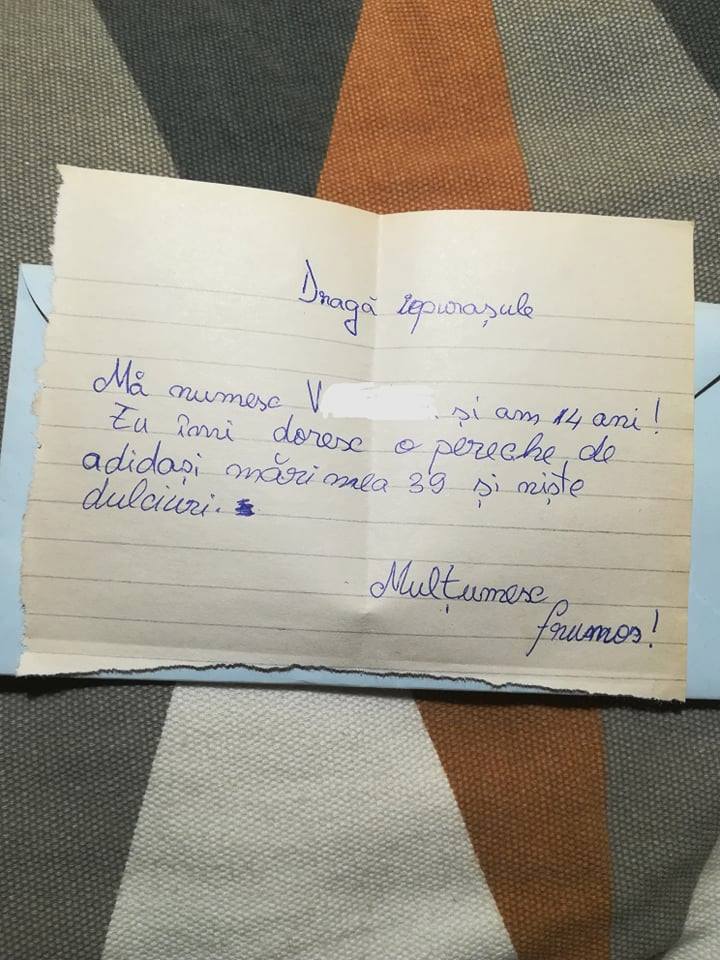 Dragă iepurașule
Mă numesc V și am 14 ani!
Eu îmi doresc o pereche de
adidași mărimea 39 și niște
dulciuri.
Mulțumesc
frumos!